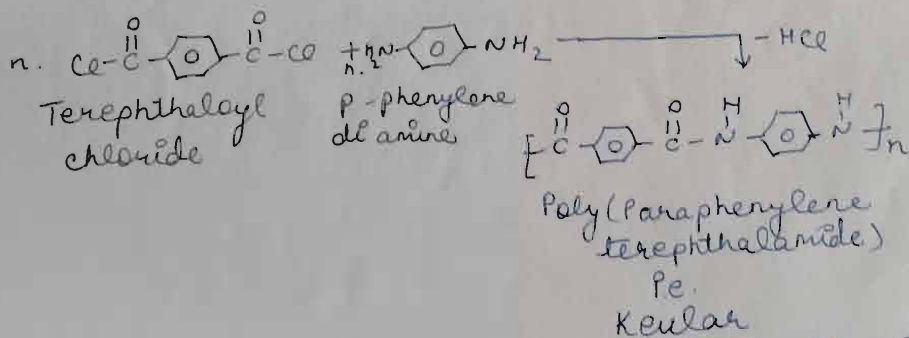 n. Cl-C(=O)-⌬-C(=O)-Cl + n. H₂N-⌬-NH₂ → -HCl
Terephthaloyl chloride
p-phenylene di amine
[-C(=O)-⌬-C(=O)-N(H)-⌬-N(H)-]n
Poly(Paraphenylene
terephthalamide)
Pe.
Kevlar